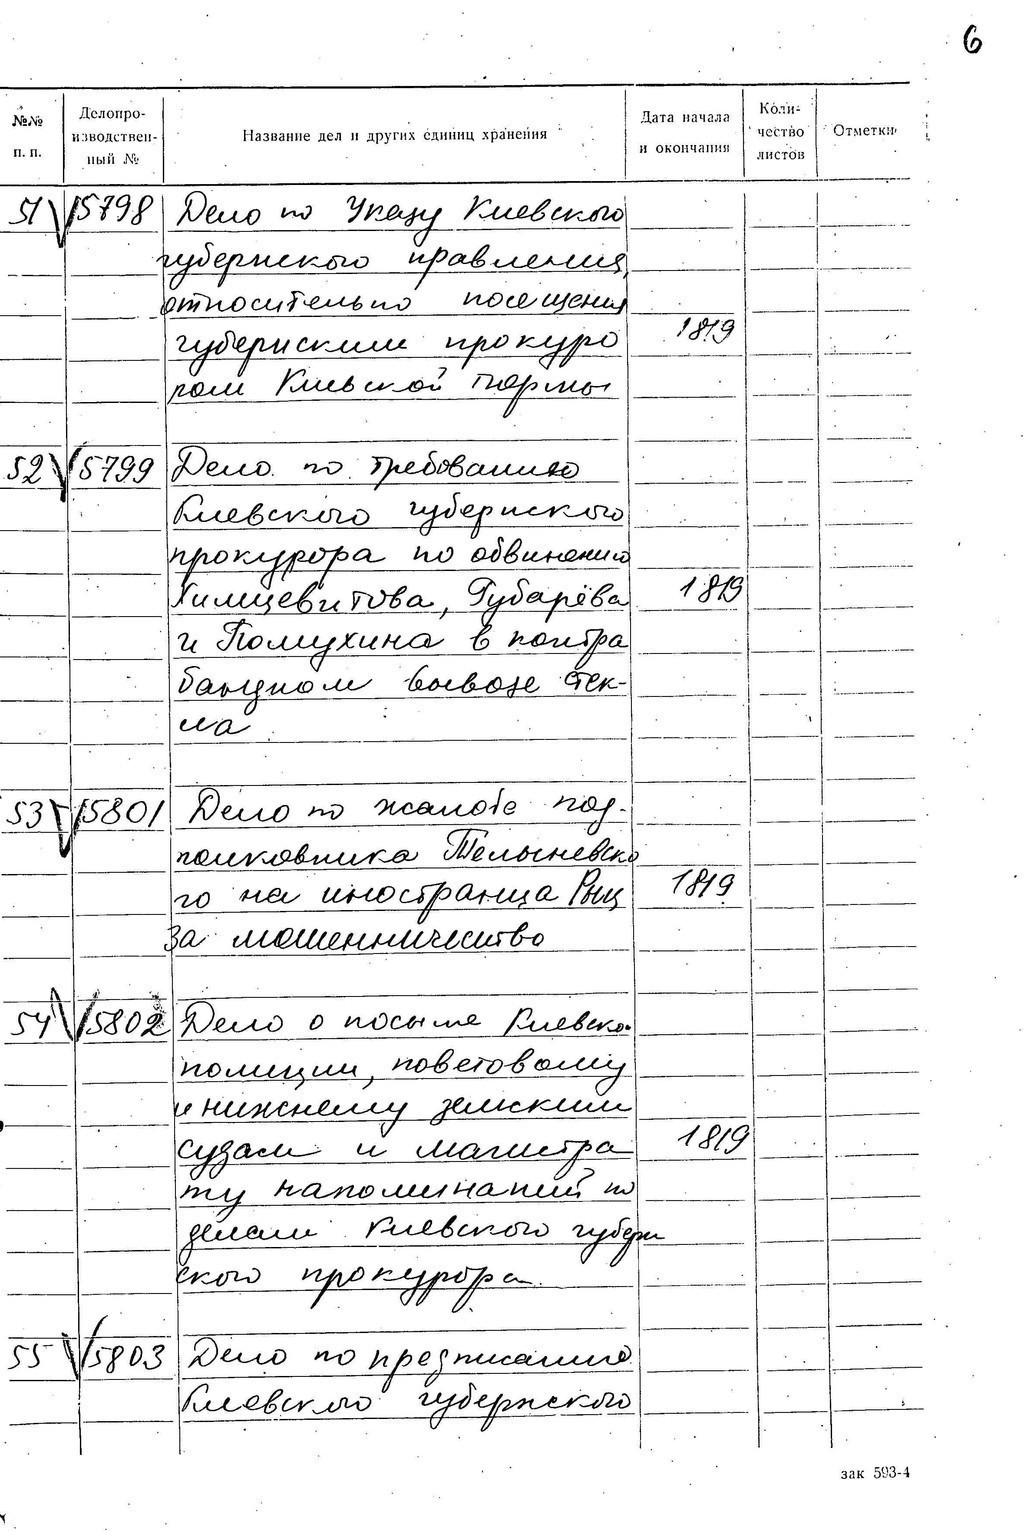 6
№№ п. п. Делопро- изводствен- ный № Название дел и других единиц хранения Дата начала и окончания Коли- чество листов Отметки
51 5798 Дело по Указу Киевского
губернского правления,
относительно посещения
губернским прокуро 1819
ром Киевской тюрмы
52 5799 Дело по требованию
Киевского губернского
прокурора по обвинению
Губарёва 1819
и Помухина в контра
бандном вывозе стек-
ла
53 5801 Дело по жалобе под-
полковника
го на иностранца 1819
за мошенничество
54 5802 Дело о посылке Киевско
полиции, поветовому
и нижнему земским
судам и магистра 1819
ту напоминаний по
делам Киевского губерн
ского прокурора
55 5803 Дело по предписанию
Киевского губернского
зак 593-4